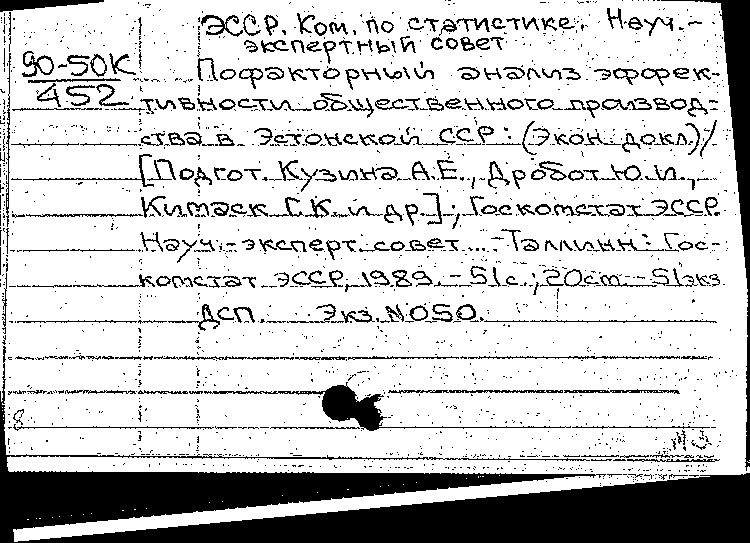 ЭССР. Ком. по статистике. Науч.-
экспертный совет
90-50К
452
Пофакторный анализ эффек-
тивности общественного производ-
ства в Эстонской ССР: (Экон. докл.)/
[Подгот. Кузина А.Е., Дробот Ю.И.,
Китаск Г.К. и др.]; Госкомстат ЭССР.
Науч.-эксперт. совет... - Таллинн: Гос-
комстат ЭССР, 1989. - 51с.; 20см. - 51экз
ДСП. Экз. N 050.
8